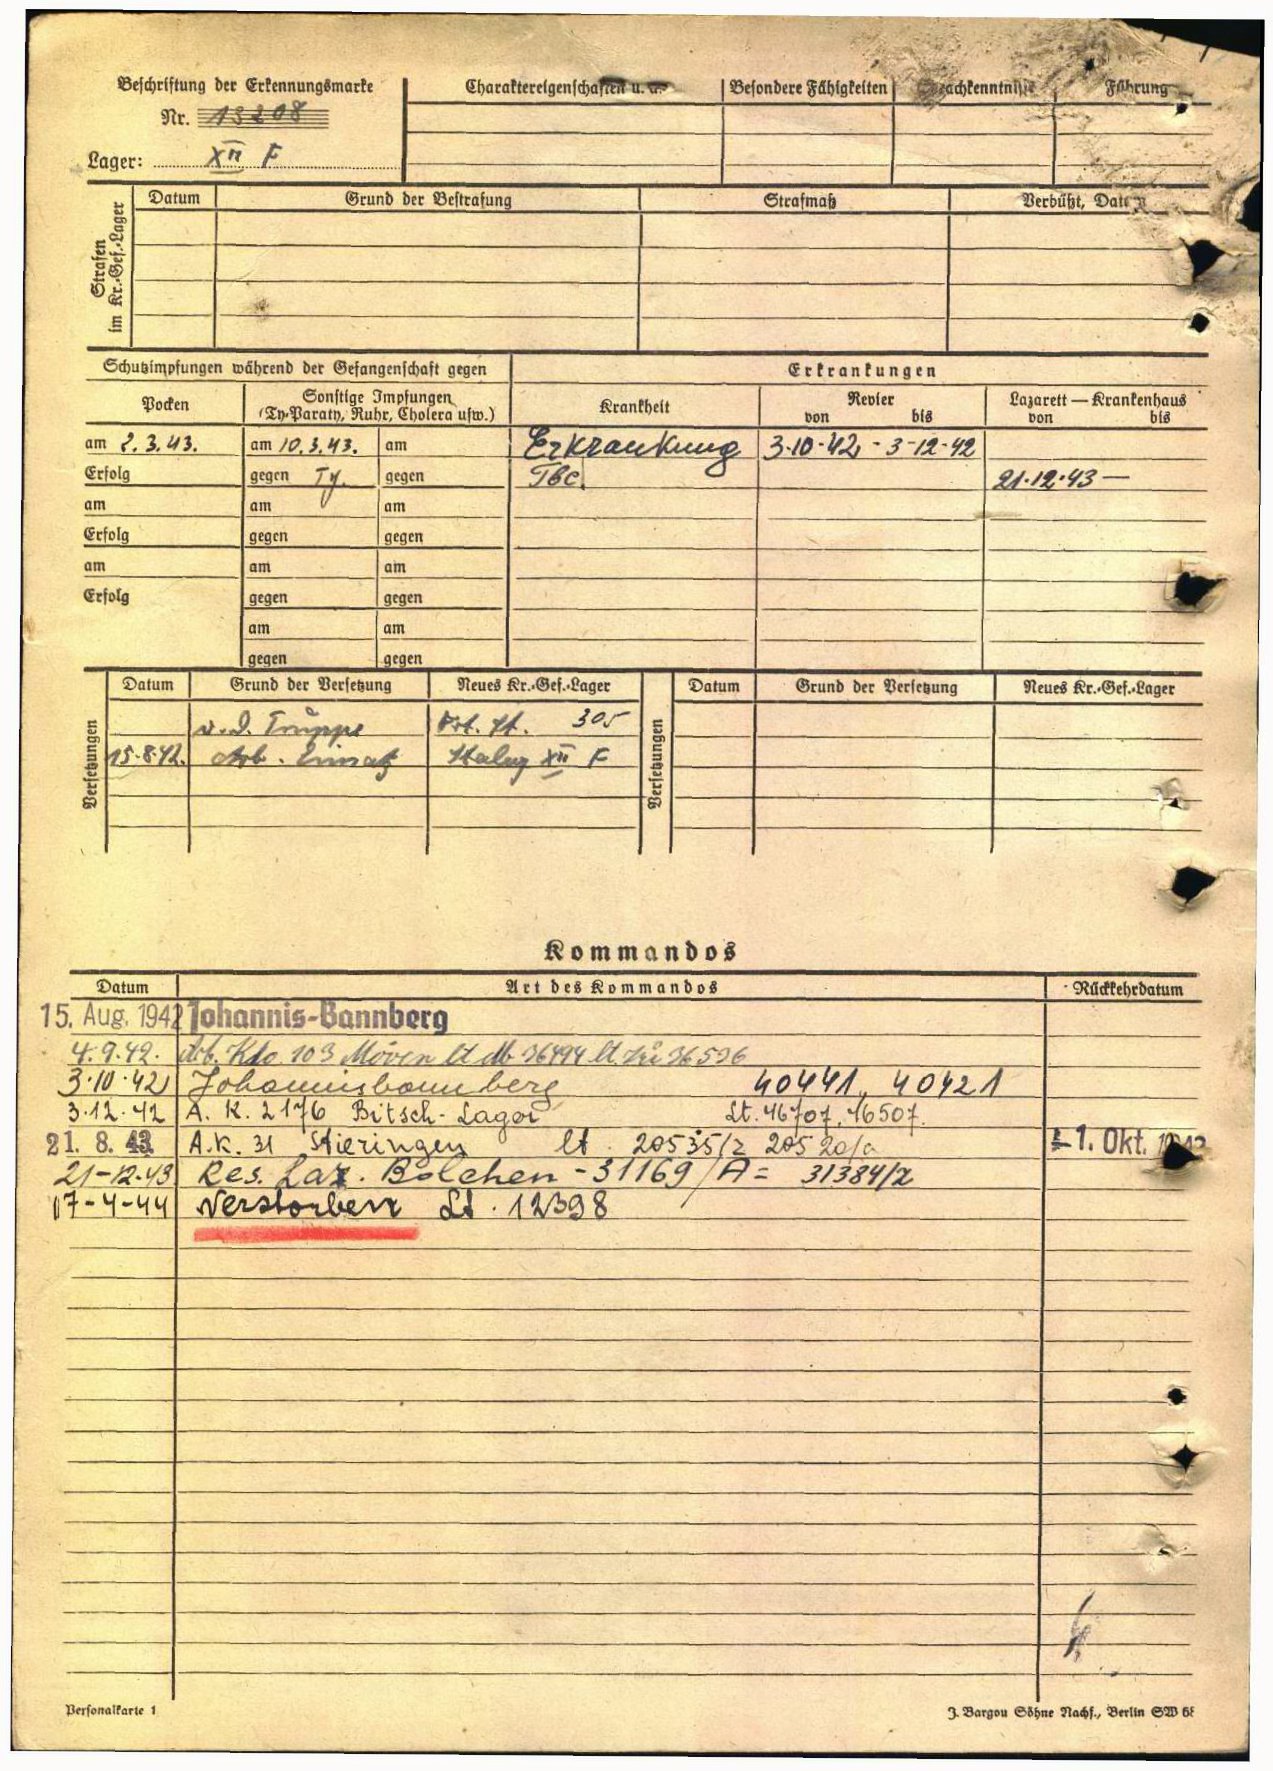 Beschriftung der Erkennungsmarke
Nr. 13208
Lager: XII F
Charaktereigenschaften u. a. Besondere Fähigkeiten Sprachkenntnisse Führung
Strafen im Kr.-Gef.-Lager
Datum Grund der Bestrafung Strafmaß Verbüßt, Datum
Schutzimpfungen während der Gefangenschaft gegen Erkrankungen
Pocken Sonstige Impfungen (Ty-Paraty, Ruhr, Cholera usw.) Krankheit Revier von bis Lazarett — Krankenhaus von bis
am 2.3.43. am 10.3.43. am Erkrankung 3.10.42 - 3-12-42
Erfolg gegen Ty. gegen Tbc. 21.12.43 —
am am am
Erfolg gegen gegen
am am am
Erfolg gegen gegen
am am
gegen gegen
Versetzungen
Datum Grund der Versetzung Neues Kr.-Gef.-Lager
v. d. Truppe 305
15.8.42. Arb. Einsatz Stalag XII F
Versetzungen
Datum Grund der Versetzung Neues Kr.-Gef.-Lager
Kommandos
Datum Art des Kommandos Rückkehrdatum
15. Aug. 1942 Johannis-Bannberg
4.9.42. Arb. Kdo. 103 lt 36494 lt. 36536
3.10.42 Johannisbannberg 40441, 40421
3.12.42 A. K. 2176 Bitsch-Lager Lt. 46707, 46507.
21. 8. 43 A.K. 31 Stieringen lt. 20535/z 20520/a - 1. Okt. 1943
21-12-43 Res. Laz. Bolchen - 31169/A = 31384/z
17-4-44 Verstorben Lt. 12398
Personalkarte 1
J. Bargou Söhne Nachf., Berlin SW 68